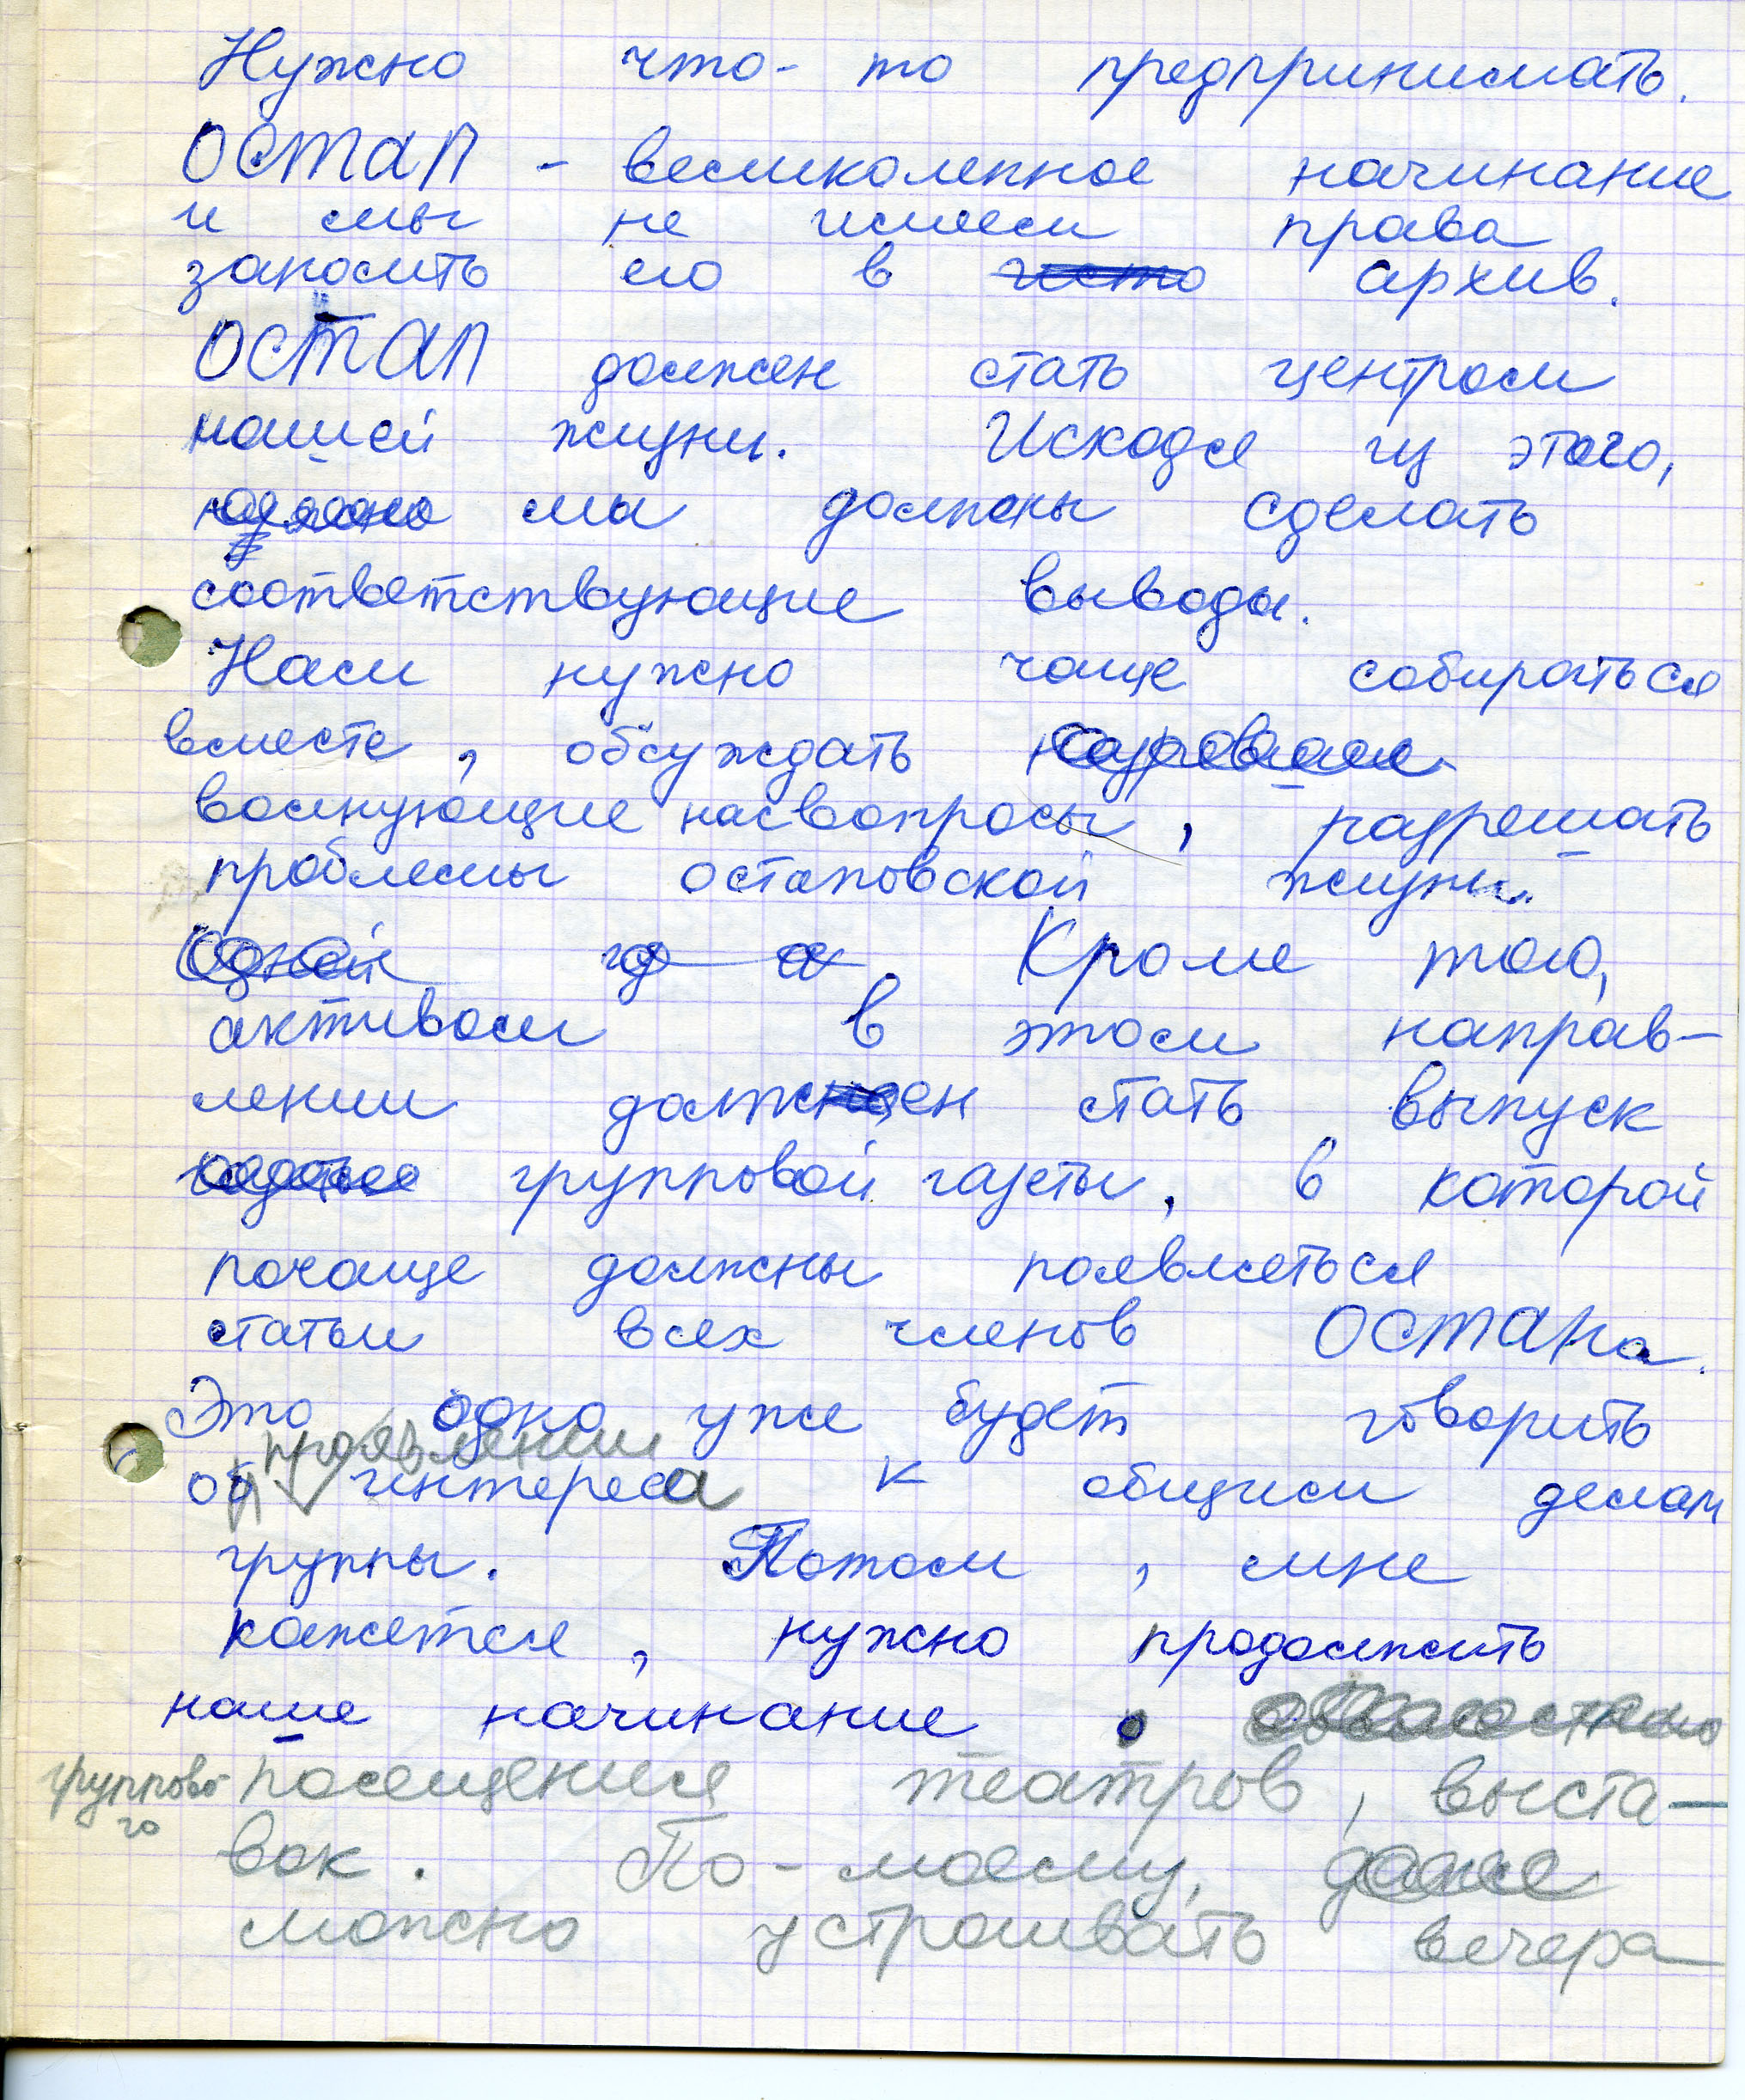 Нужно что-то предпринимать.
ОСТАП - великолепное начинание
и мы не имеем права
заносить его в архив.
ОСТАП должен стать центром
нашей жизни. Исходя из этого,
мы должны сделать
соответствующие выводы.
Нам нужно чаще собираться
вместе, обсуждать
волнующие нас вопросы, разрешать
проблемы остаповской жизни.
Кроме того,
активом в этом направ-
лении должен стать выпуск
групповой газеты, в которой
почаще должны появляться
статьи всех членов ОСТАПа.
Это одно уже будет говорить
проявлении
об интереса к общим делам
группы. Потом, мне
кажется, нужно продолжить
наше начинание о
группово- посещения театров, выста-
го
вок. По-моему,
можно устраивать вечера